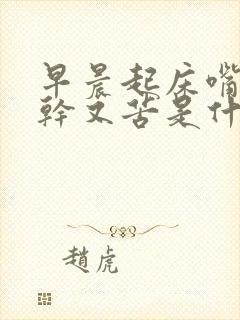 早晨起床嘴
幹又苦是什
趙虎